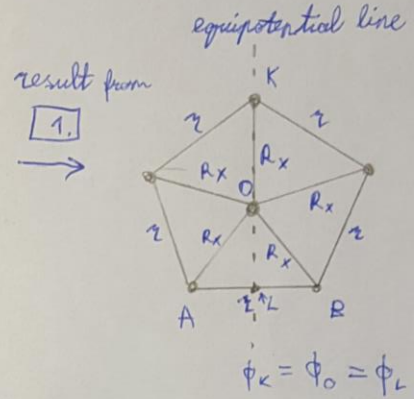 equipotential line
result from
1.
K
r
r
R_x
R_x
O
R_x
r
R_x
R_x
r
A
r
L
B
ϕ_K = ϕ_O = ϕ_L